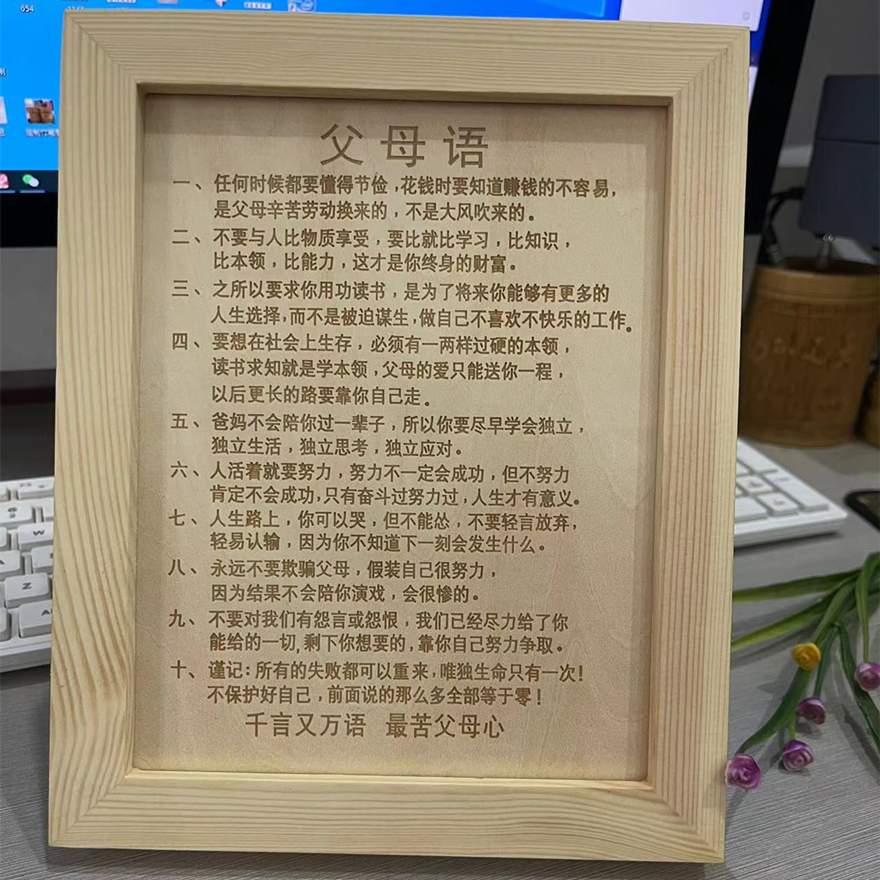 父母语
一、任何时候都要懂得节俭,花钱时要知道赚钱的不容易,
是父母辛苦劳动换来的,不是大风吹来的。
二、不要与人比物质享受,要比就比学习,比知识,
比本领,比能力,这才是你终身的财富。
三、之所以要求你用功读书,是为了将来你能够有更多的
人生选择,而不是被迫谋生,做自己不喜欢不快乐的工作。
四、要想在社会上生存,必须有一两样过硬的本领,
读书求知就是学本领,父母的爱只能送你一程,
以后更长的路要靠你自己走。
五、爸妈不会陪你过一辈子,所以你要尽早学会独立,
独立生活,独立思考,独立应对。
六、人活着就要努力,努力不一定会成功,但不努力
肯定不会成功,只有奋斗过努力过,人生才有意义。
七、人生路上,你可以哭,但不能怂,不要轻言放弃,
轻易认输,因为你不知道下一刻会发生什么。
八、永远不要欺骗父母,假装自己很努力,
因为结果不会陪你演戏,会很惨的。
九、不要对我们有怨言或怨恨,我们已经尽力给了你
能给的一切,剩下你想要的,靠你自己努力争取。
十、谨记:所有的失败都可以重来,唯独生命只有一次!
不保护好自己,前面说的那么多全部等于零!
千言又万语 最苦父母心
654